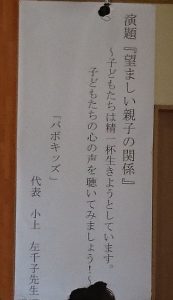 演題『望ましい親子の関係』
～子どもたちは精一杯生きようとしています。
子どもたちの心の声を聴いてみましょう！～
「パボキッズ」
代表　小上　左千子先生